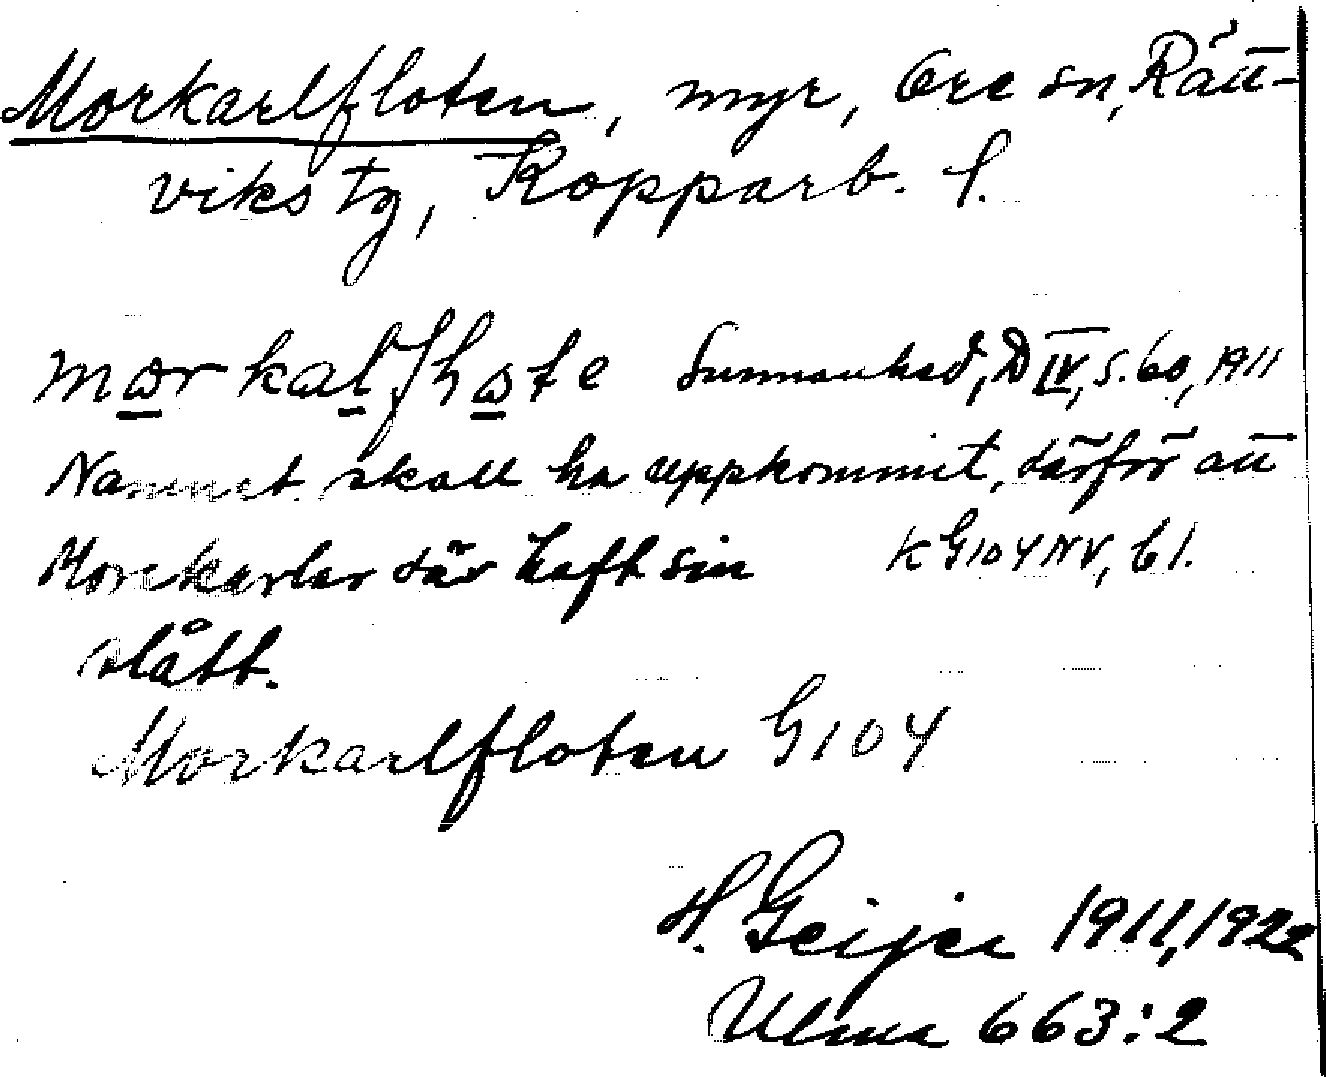 Morkarlfloten, myr, Ore sn, Rätt-
viks tg, Kopparb. l.
Sunnanhed, D IV, s. 60, 1911
Namnet skall ha uppkommit, därför att
Morekarlar där haft sin K G104 NV, 61.
slått.
Morkarlfloten G104
H. Geijer 1911, 1922
Ulma 663:2